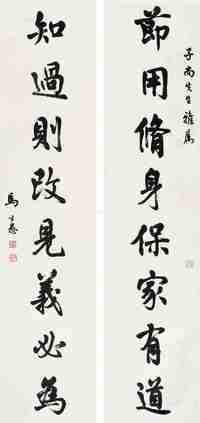 子尚先生雅属
節用脩身保家有道
知過則改見義必為
馬公愚